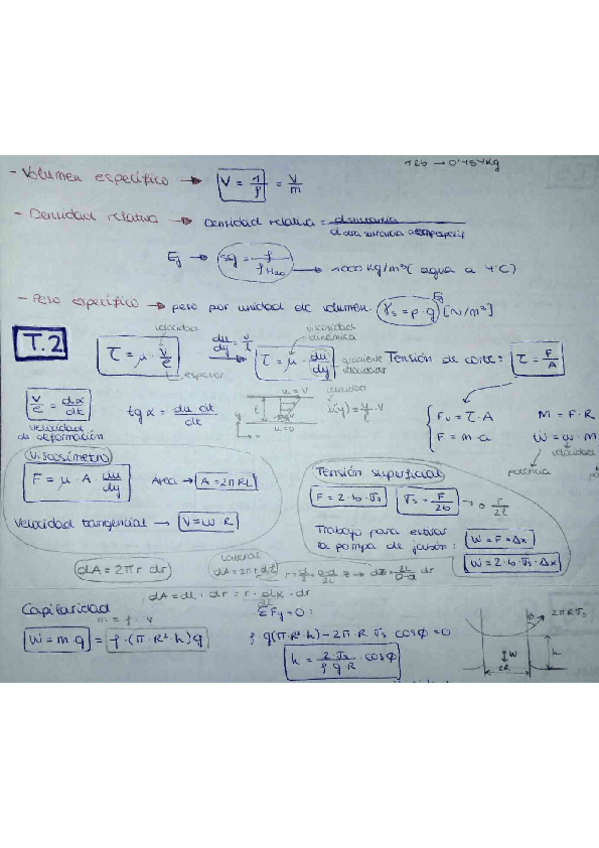 1 lb → 0'454 kg
- Volumen específico → V = 1/ρ = V/m
- Densidad relativa → Densidad relativa = d sustancia / d otra sustancia
Ej → sg = ρ/ρH2O → 1000 kg/m³ (agua a 4ºC)
- Peso específico → peso por unidad de volumen. Ej γs = ρ · g [N/m³]
T.2
velocidad
τ = μ · V/e
espesor
du/dy = V/e
viscosidad dinámica
τ = μ · du/dy
gradiente velocidad
Tensión de corte: τ = F/A
V/e = dα/dt
velocidad de deformación
tg α = du dt
velocidad
u = V
u(y) = y/e · V
u = 0
Fv = τ · A
F = m · a
M = F · R
Ẇ = ω · M
potencia
velocidad
Viscosímetro
F = μ · A du/dy
Área → A = 2πRL
Velocidad tangencial → V = ω · R
Tensión superficial
F = 2 · b · σs
σs = F/2b → o F/2l
Trabajo para estirar
la pompa de jabón: W = F · Δx
W = 2 · b · σs · Δx
dA = 2πr dr
Lateral
dA = dl · dr = r · dα · dr
Capilaridad
m = ρ · V
W = m · g = ρ · (π · R² · h) g
ΣFy = 0:
ρ · g(π · R² · h) - 2π · R σs cosφ = 0
h = 2 · σs / ρ g R · cosφ
2πRσs
φ
W
h
2R